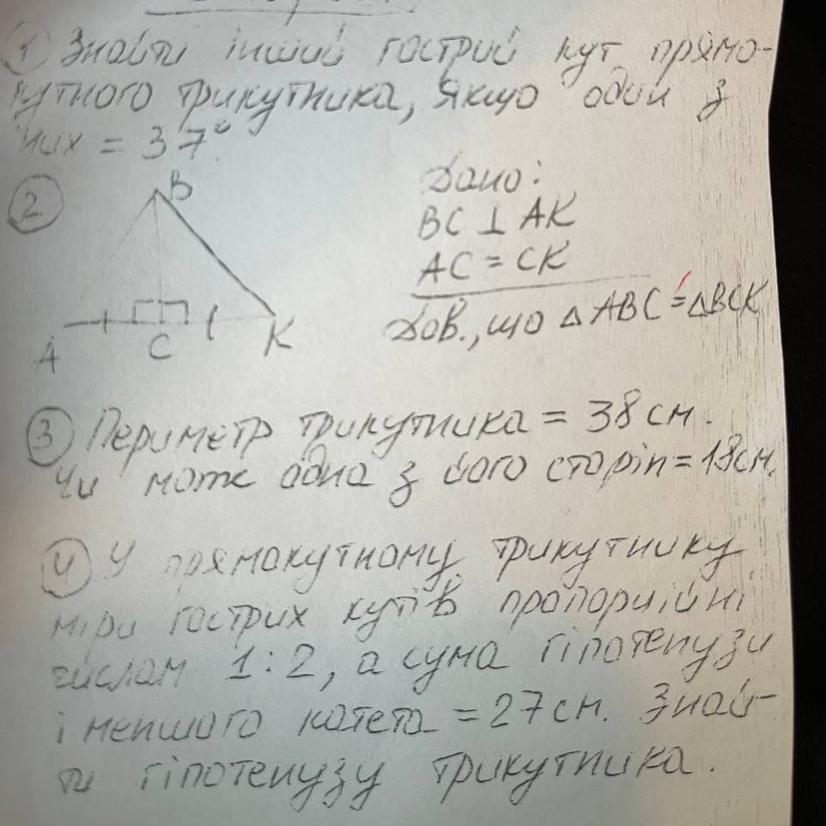 ① Знайти інший гострий кут прямо-
кутного трикутника, якщо один з
них = 37°.
②
B
A
C
K
Дано:
BC ⊥ AK
AC = CK
Дов., що △ ABC = △BCK
③ Периметр трикутника = 38 см.
Чи може одна з його сторін = 18см.
④ У прямокутному трикутнику
міри гострих кутів пропорційні
числам 1 : 2, а сума гіпотенузи
і меншого катета = 27 см. Знай-
ти гіпотенузу трикутника.